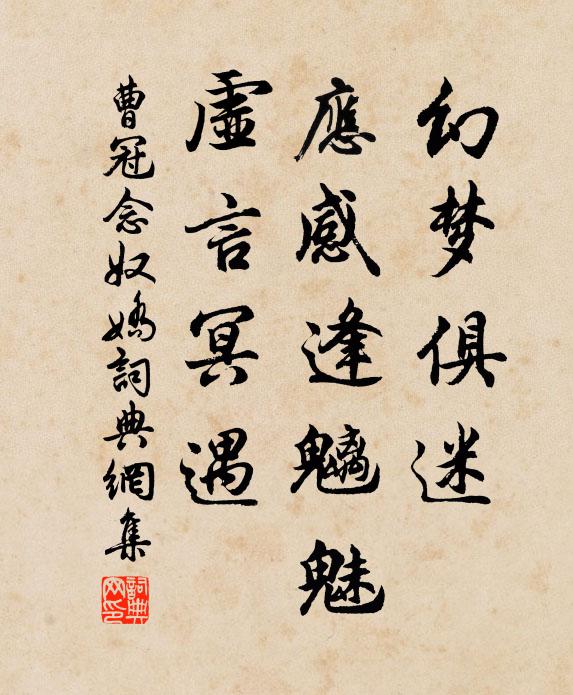 幻梦俱迷
應感逢魑魅
虛言冥遇
曹冠念奴嬌詞典網集
詞典网印